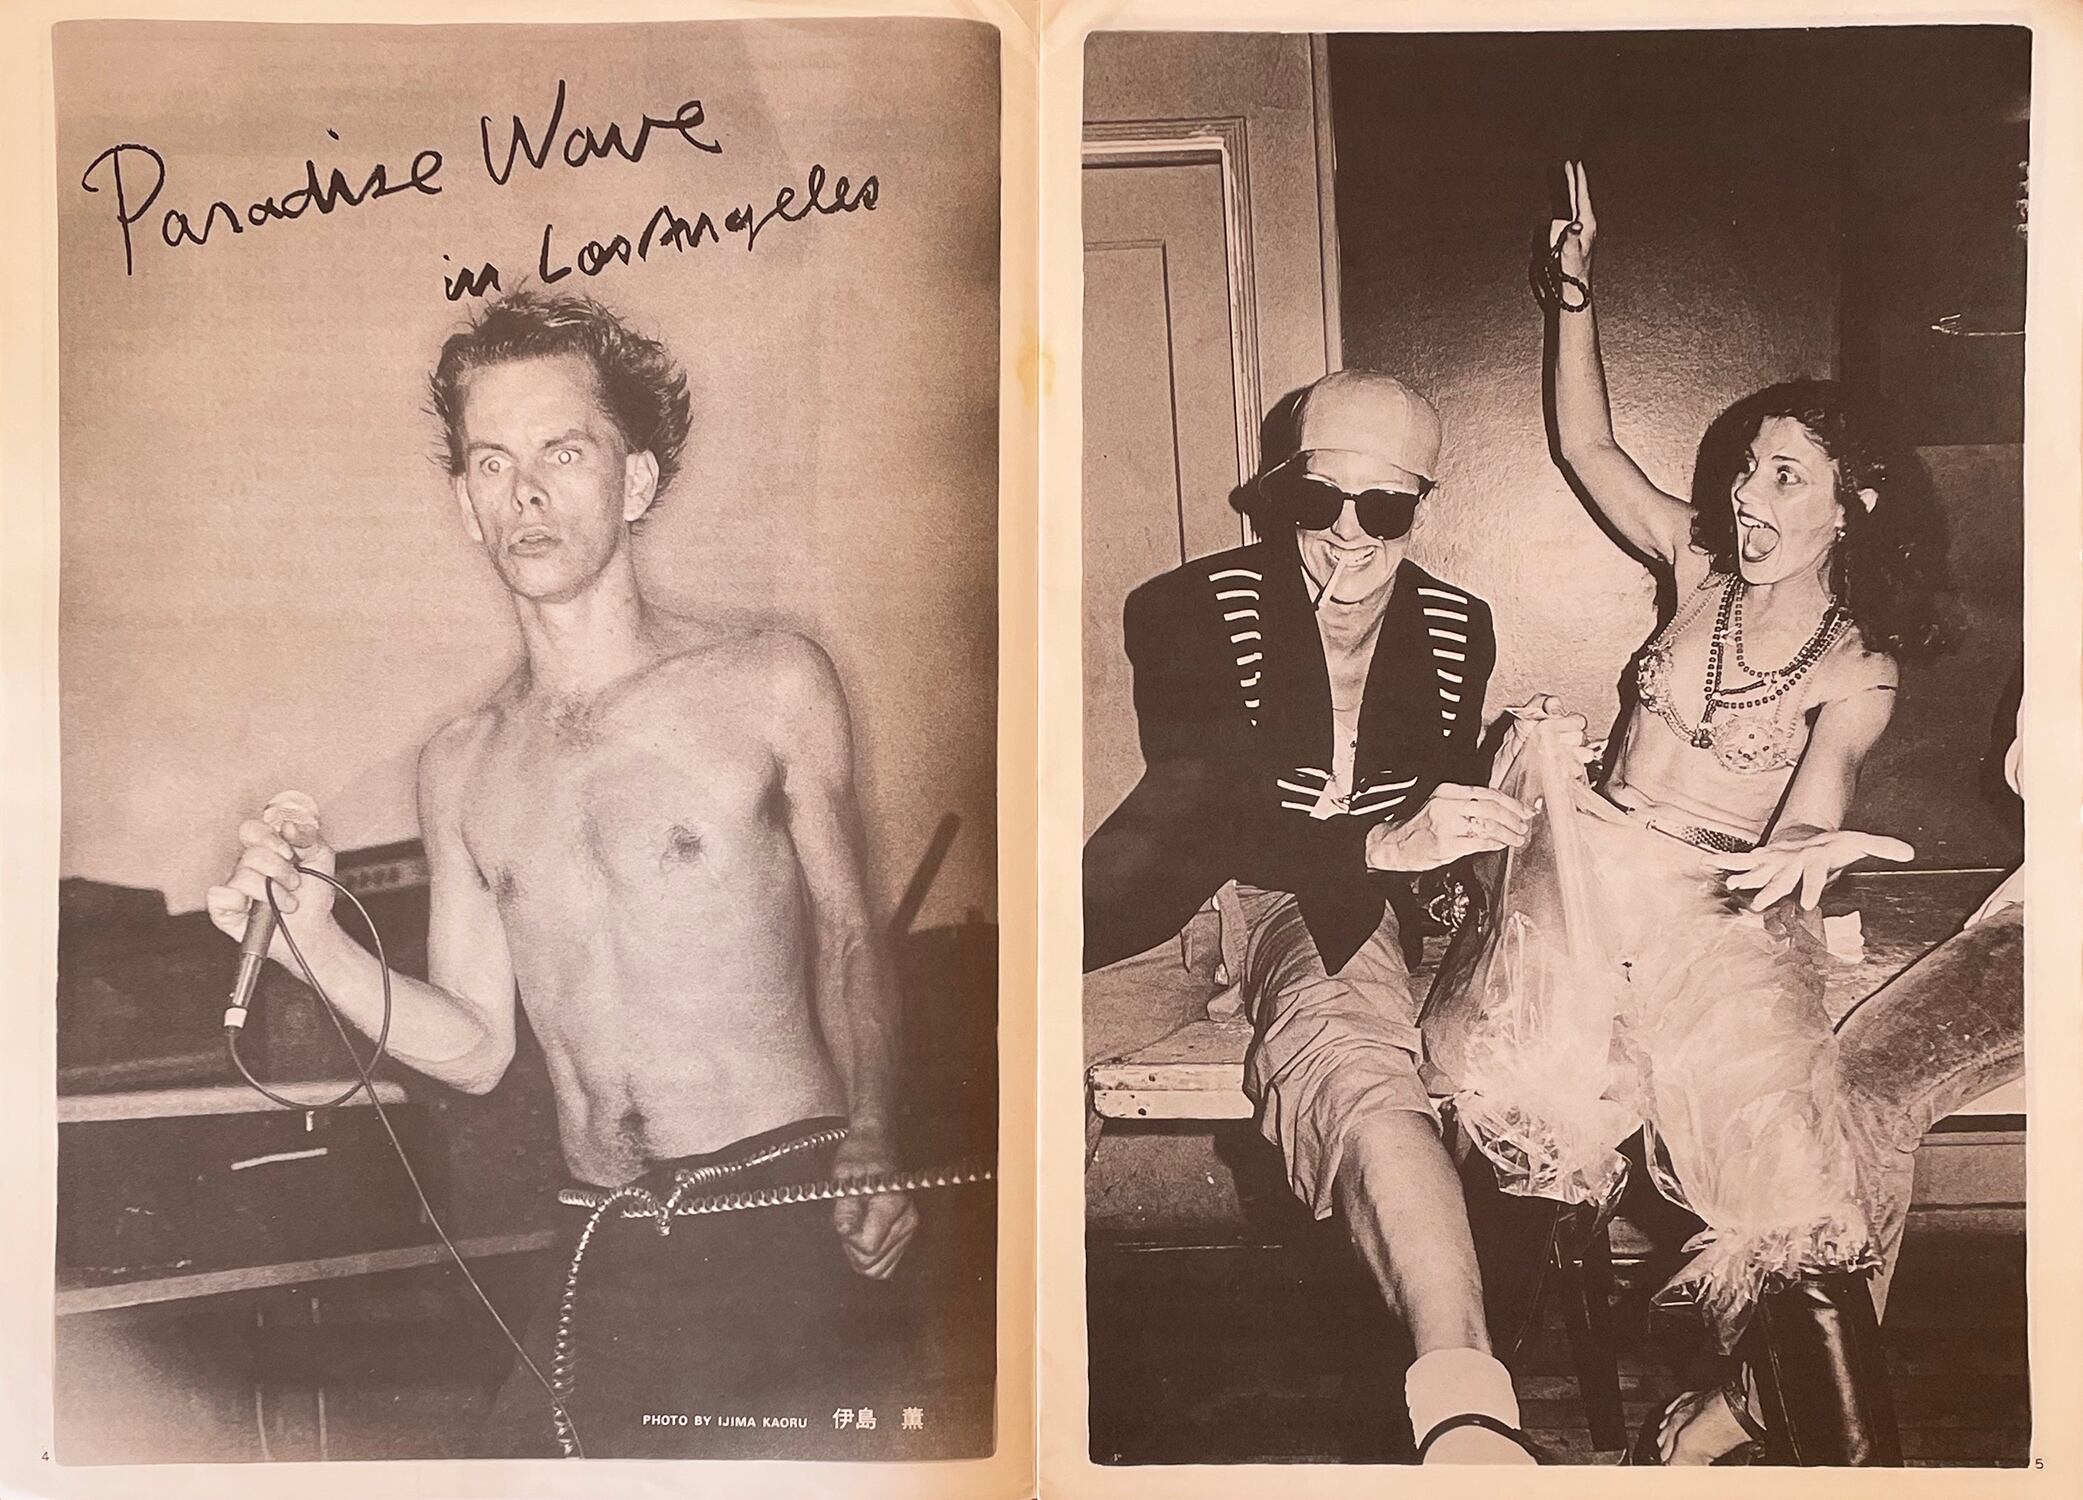 Paradise Wave
in Los Angeles
PHOTO BY IJIMA KAORU 伊島 薫
4
5